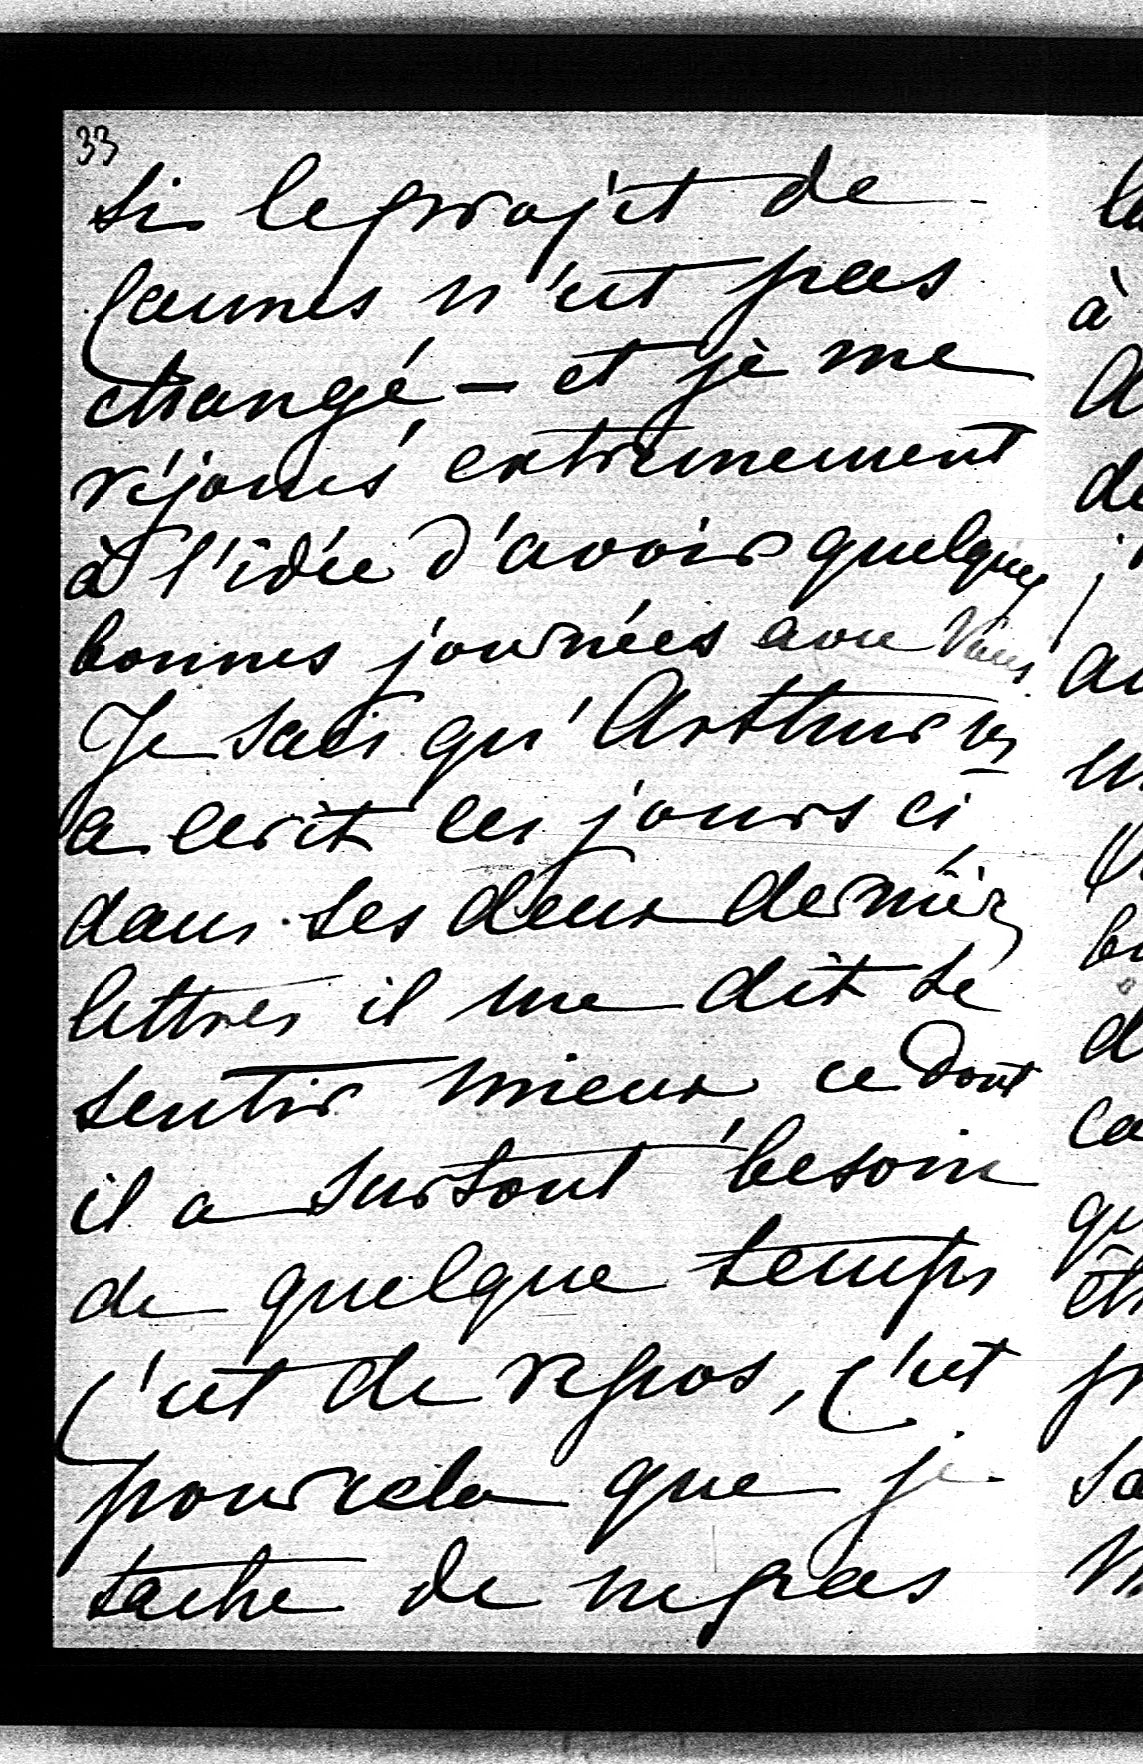 33
si le projet de
Cannes n'est pas
changé — et je me
réjouis extremement
à l'idée d'avoir quelques
bonnes journées avec Vous
Je sais qu'Arthur vs
a ecrit ces jours ci
dans ses deux dernièr
lettres il me dit se
sentir mieux, ce dont
il a surtout besoin
de quelque temps
c'est de repos, c'est
pour cela que je
tache de ne pas